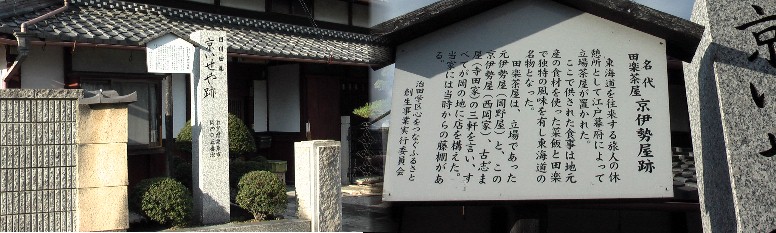 京いせや跡
名代
田楽茶屋 京伊勢屋跡
東海道を往来する旅人の休
憩所として江戸幕府によって
立場茶屋が置かれた。
ここで供された食事は地元
産の食材を使った菜飯と田楽
で独特の風味を有し東海道の
名物となった。
田楽茶屋は、立場であった
元伊勢屋(岡野屋)と、この
京伊勢屋(西岡家)、古志ま
屋(寺田家)の三軒を言い、す
べてが岡の地に店を構えた。
当家には当時からの藤棚があ
る。
治田学区心をつなぐふるさと
創生事業実行委員会
京い